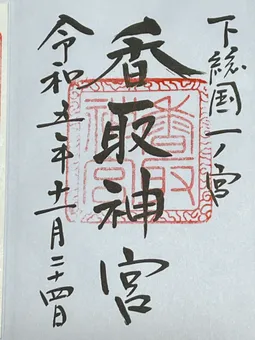 下総国一ノ宮
香取神宮
令和五年十一月二十四日
香取
神宮